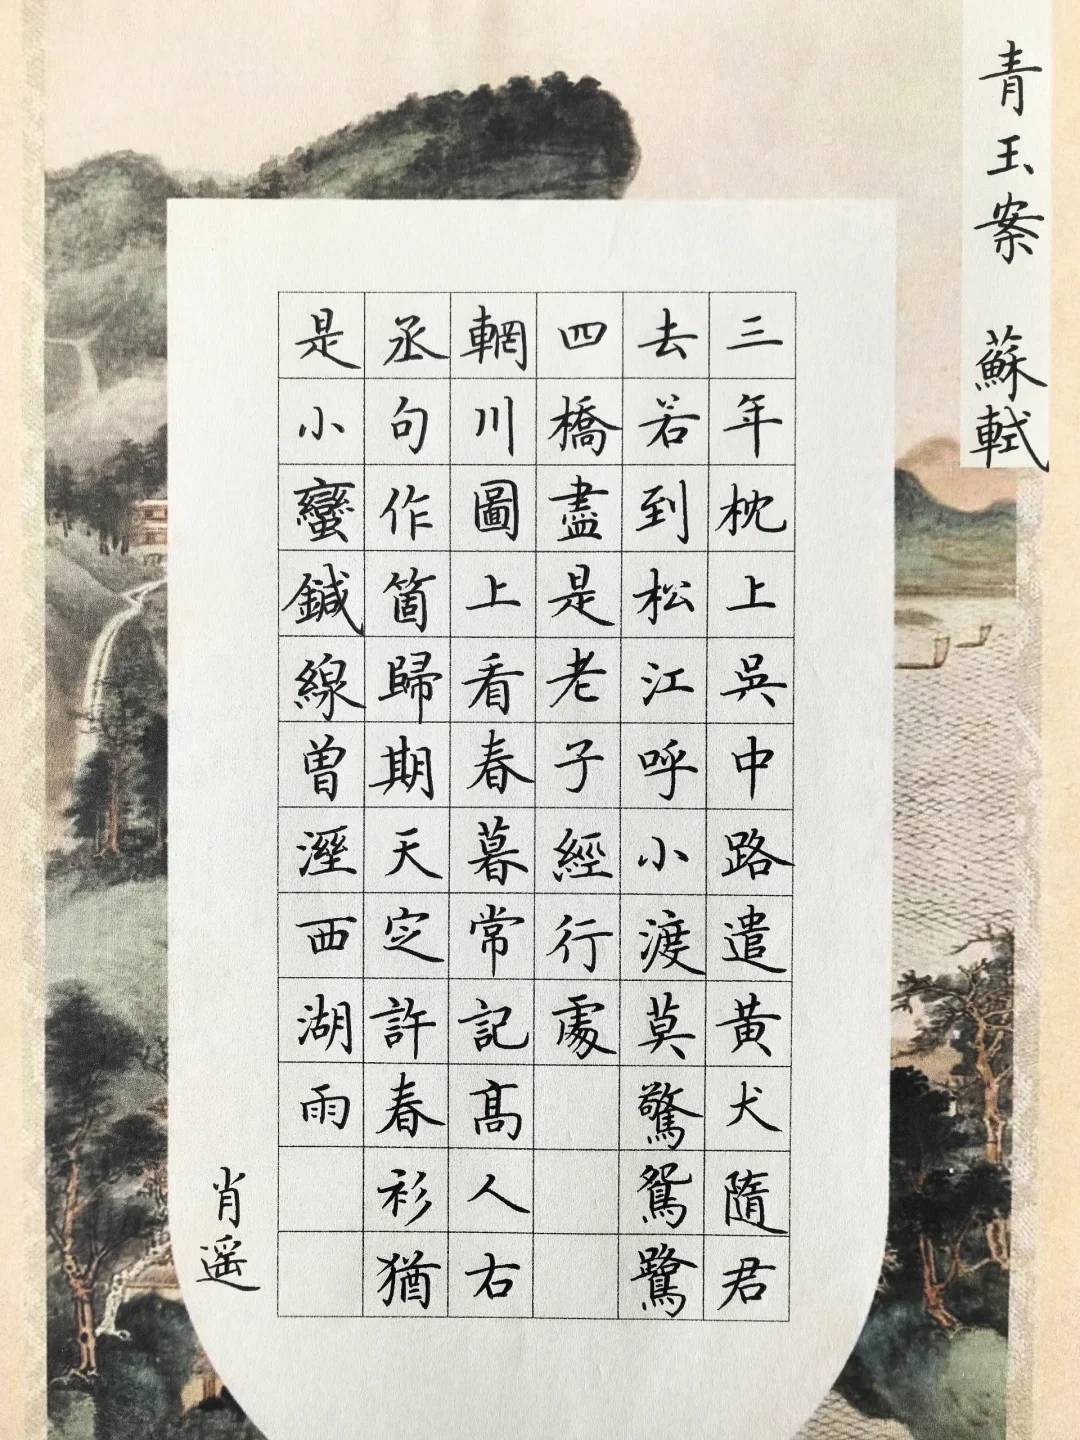 青玉案 蘇軾
三年枕上吳中路遣黃犬隨君
去若到松江呼小渡莫驚鴛鷺
四橋盡是老子經行處
輞川圖上看春暮常記高人右
丞句作箇歸期天定許春衫猶
是小蠻鍼線曾溼西湖雨
肖遥